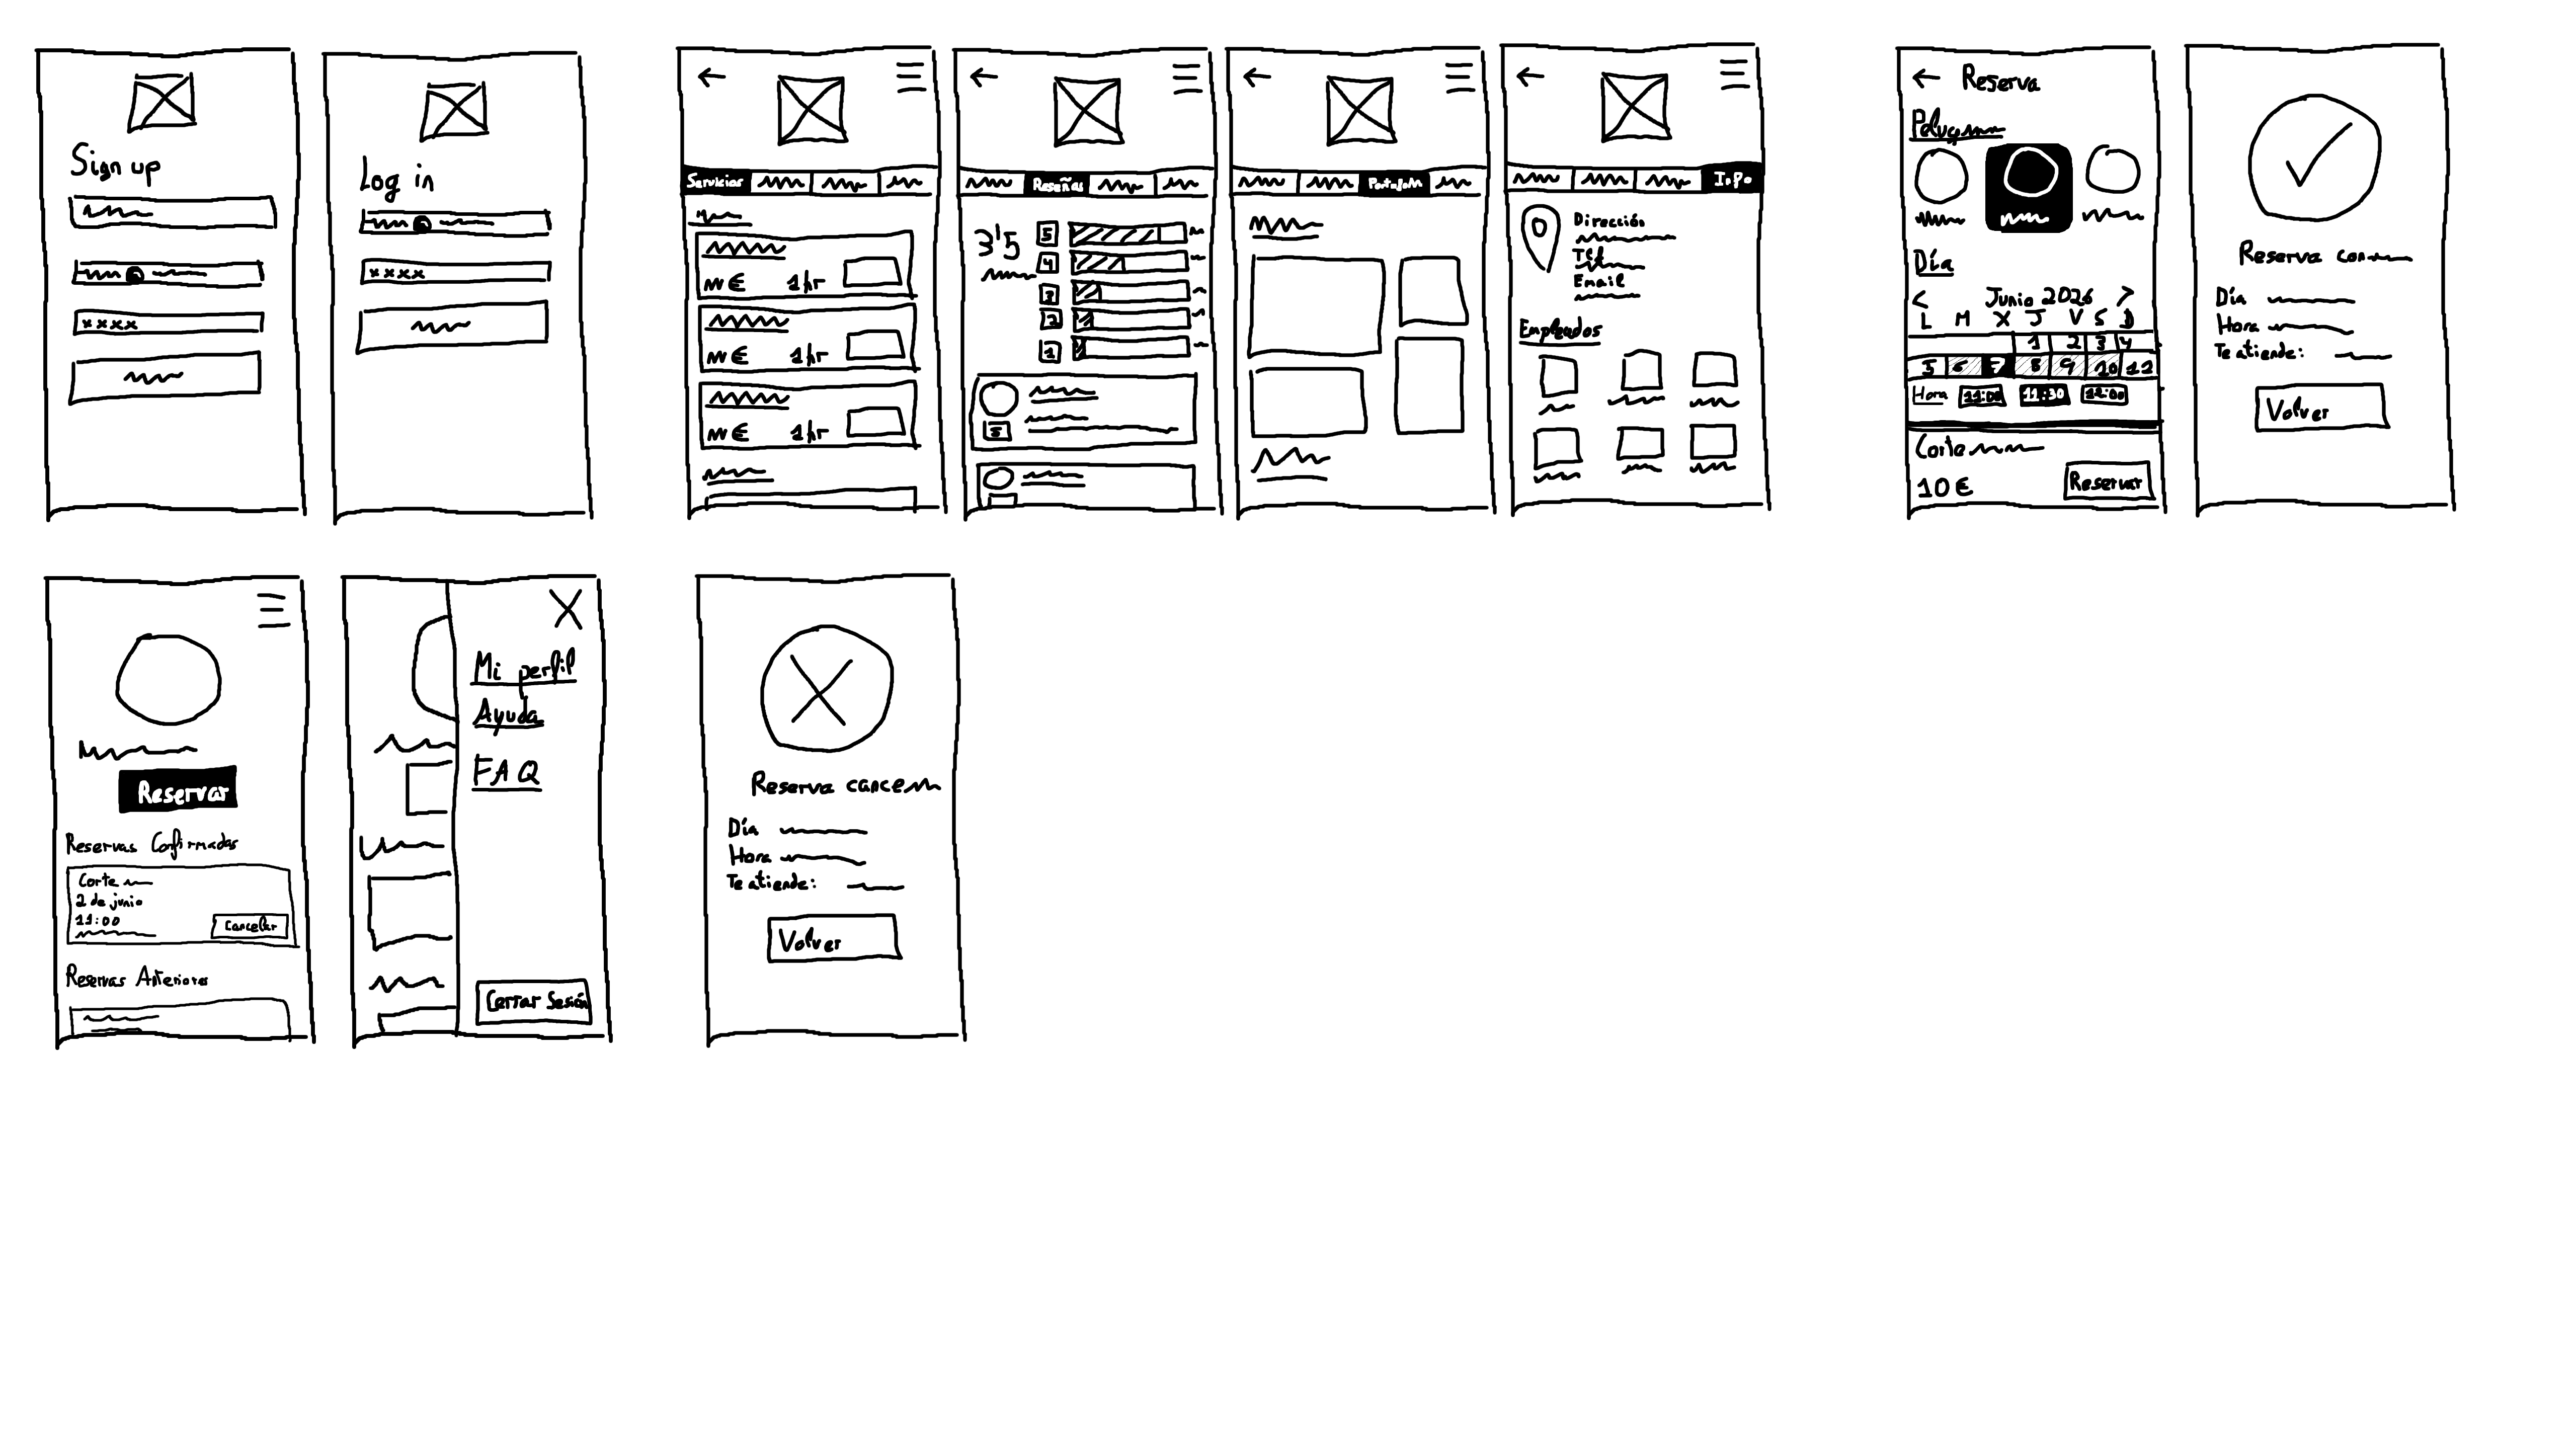 Sign up
xxxx
Log in
xxxx
Servicios
€ 1 hr
€ 1 hr
€ 1 hr
Reseñas
3'5
5
4
3
2
1
5
Info
Dirección
Tlf
Email
Empleados
Reserva
Día
< Junio 2026 >
L M X J V S D
1 2 3 4
5 6 7 8 9 10 11
Hora 11:00 11:30 12:00
Corte
10 €
Reservar
Reserva
Día
Hora
Te atiende:
Volver
Reservar
Reservas Confirmadas
Corte
2 de junio
11:00
Cancelar
Reservas Anteriores
Mi perfil
Ayuda
FAQ
Cerrar Sesión
Reserva
Día
Hora
Te atiende:
Volver